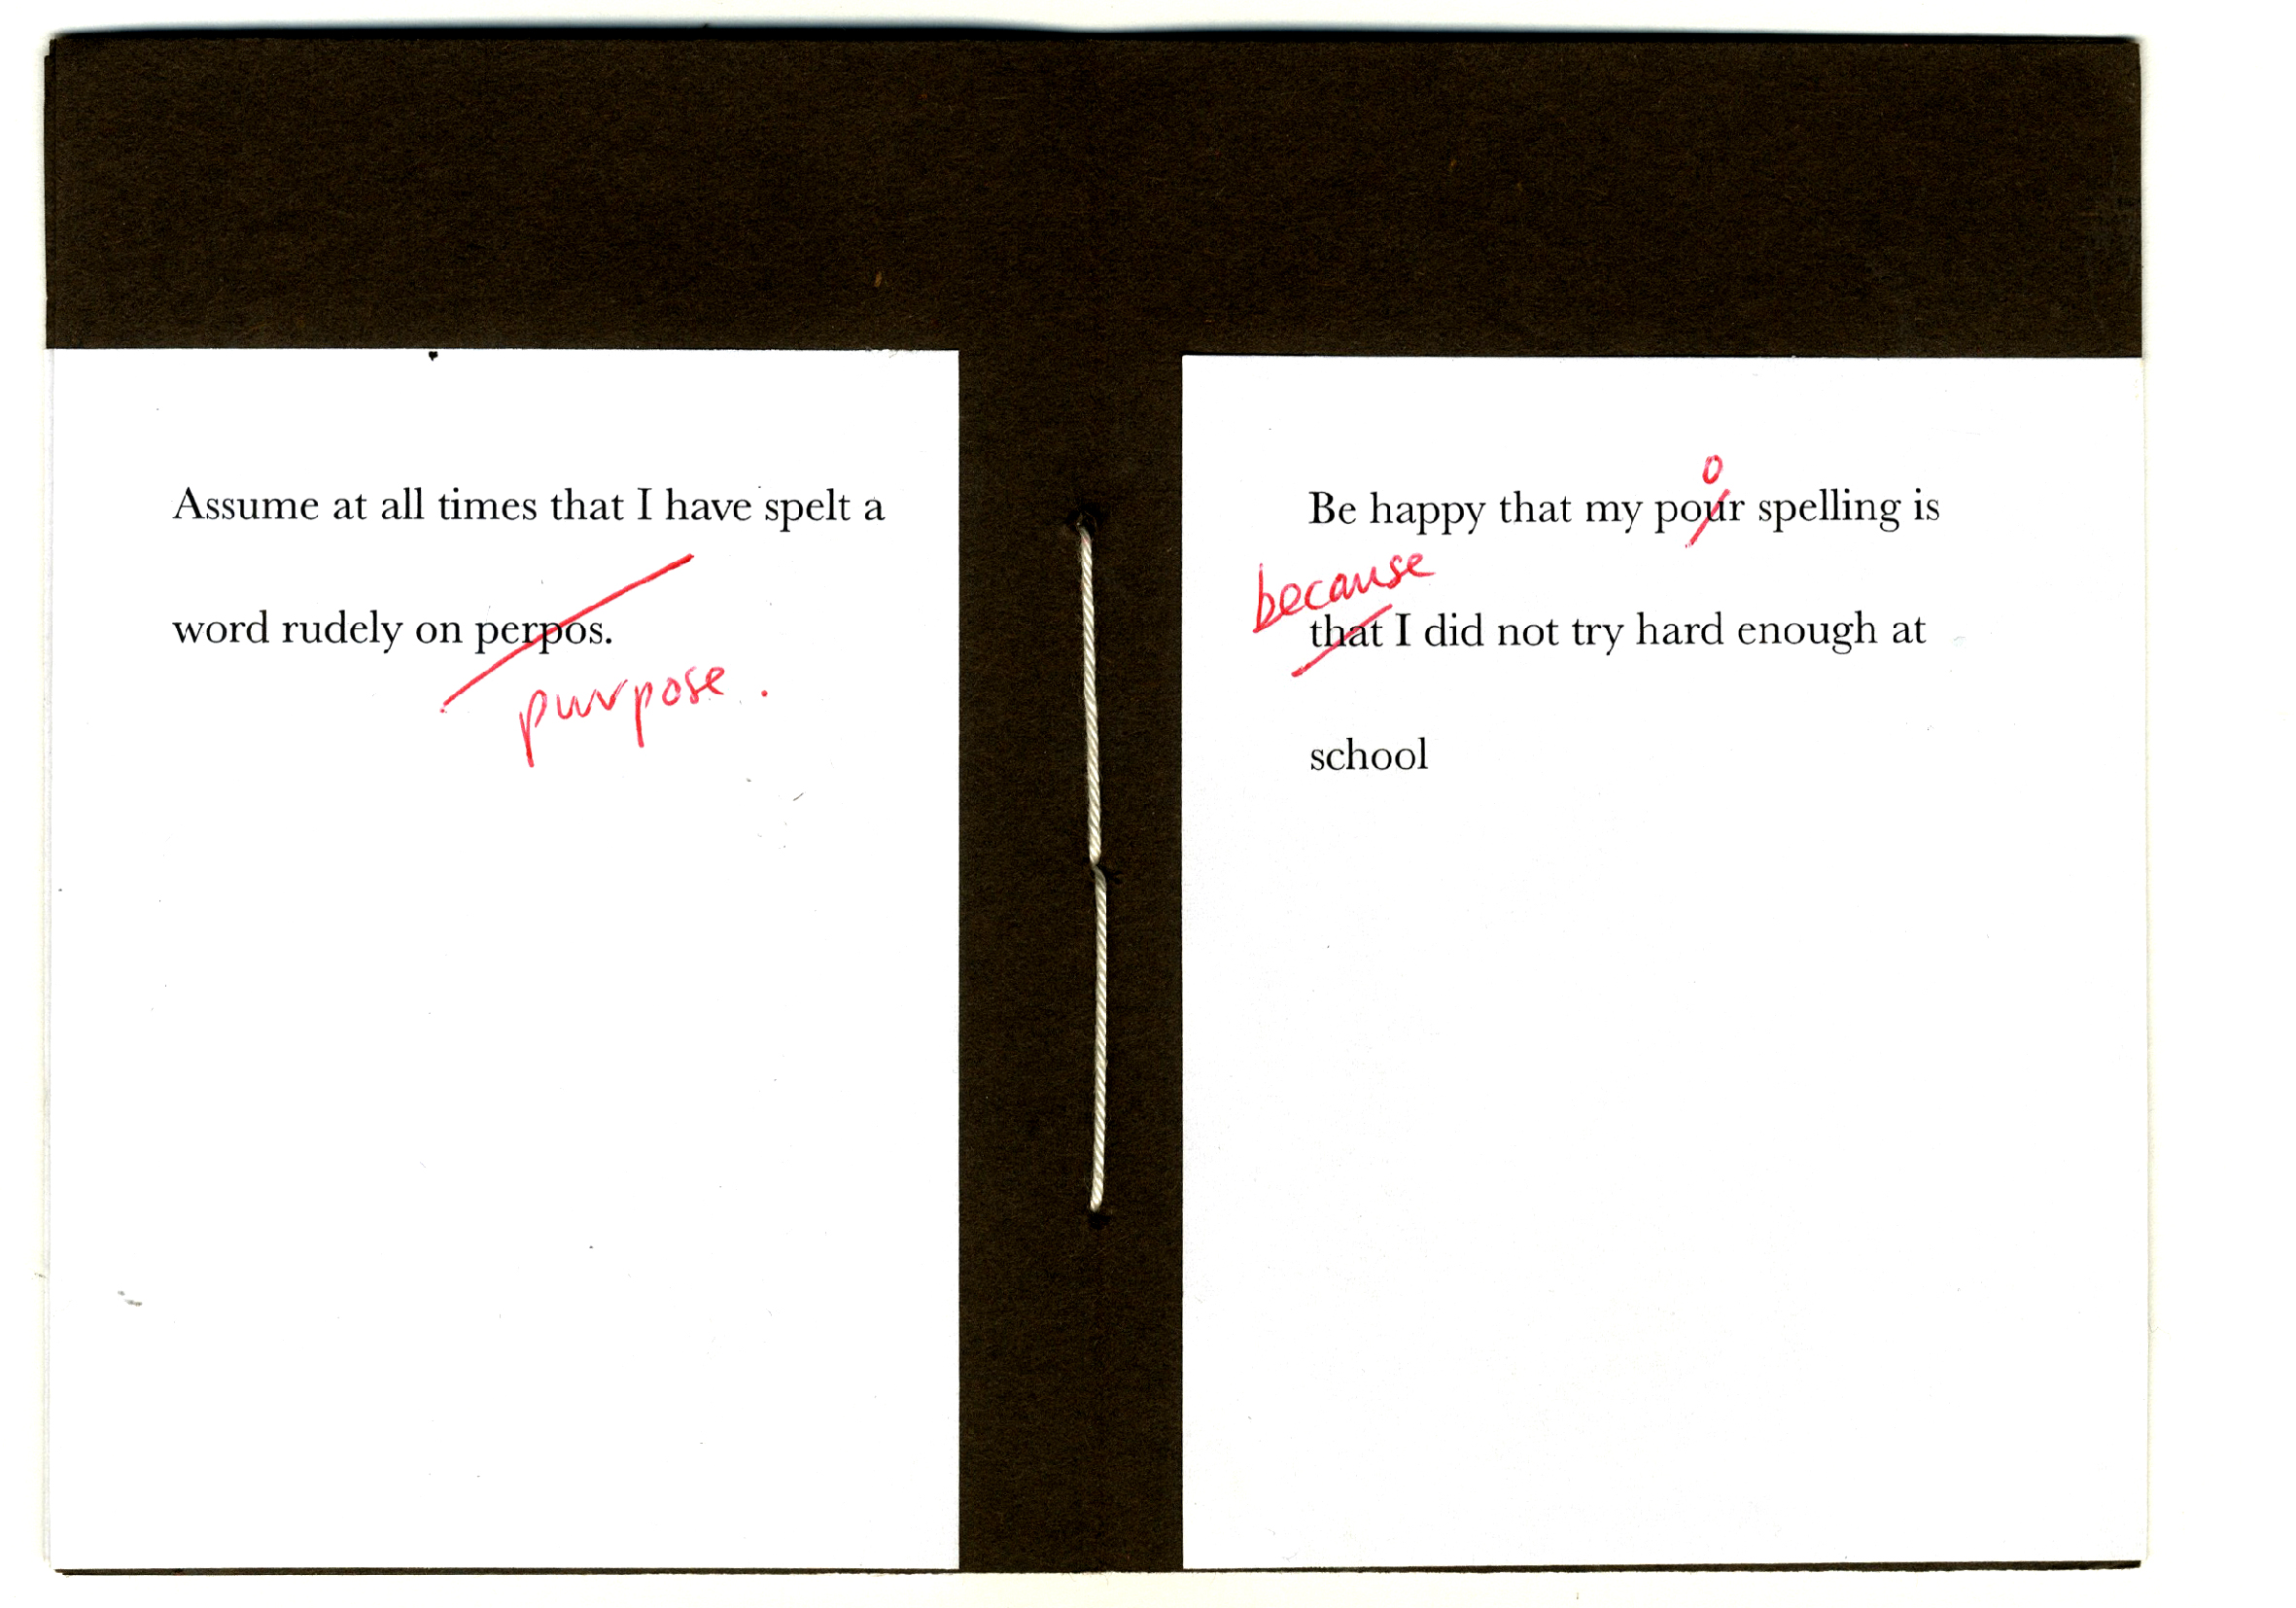 Assume at all times that I have spelt a
word rudely on perpos.
purpose.
Be happy that my pour spelling is
o
because
that I did not try hard enough at
school